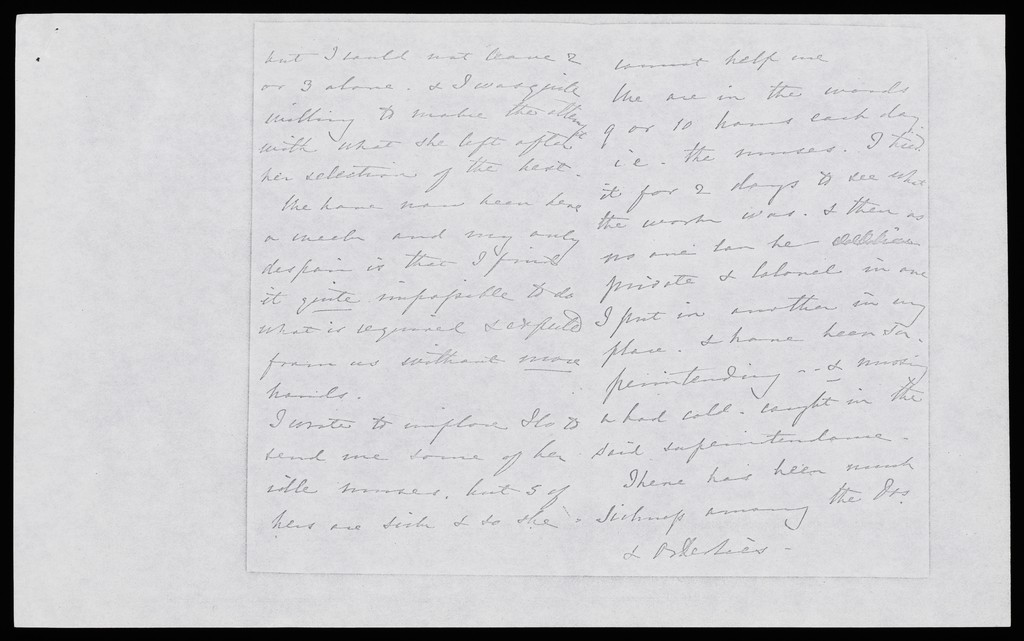 but I could not leave 2
or 3 alone. & I was quite
willing to make the attempt
with what she left after
her selection of the best.
We have now been here
a week and my only
despair is that I find
it quite impossible to do
what is required & expected
from us without more
hands.
I wrote to implore Flo to
send me some of her
idle nurses, but 5 of
hers are sick & so she
cannot help me
We are in the wards
9 or 10 hours each day
i.e. the nurses. I tried
it for 2 days to see what
the work was. & then as
no one can be
private & Colonel in one
I put in another in my
place. & have been Su-
perintending -- & nursing
a bad cold - caught in the
said superintendance -
There has been much
sickness among the Drs.
& Orderlies -